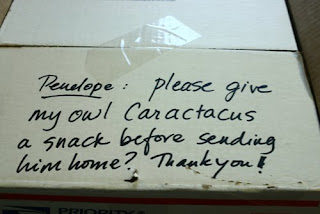 Penelope: please give
my owl Caractacus
a snack before sending
him home? Thank you!
PRIORITY